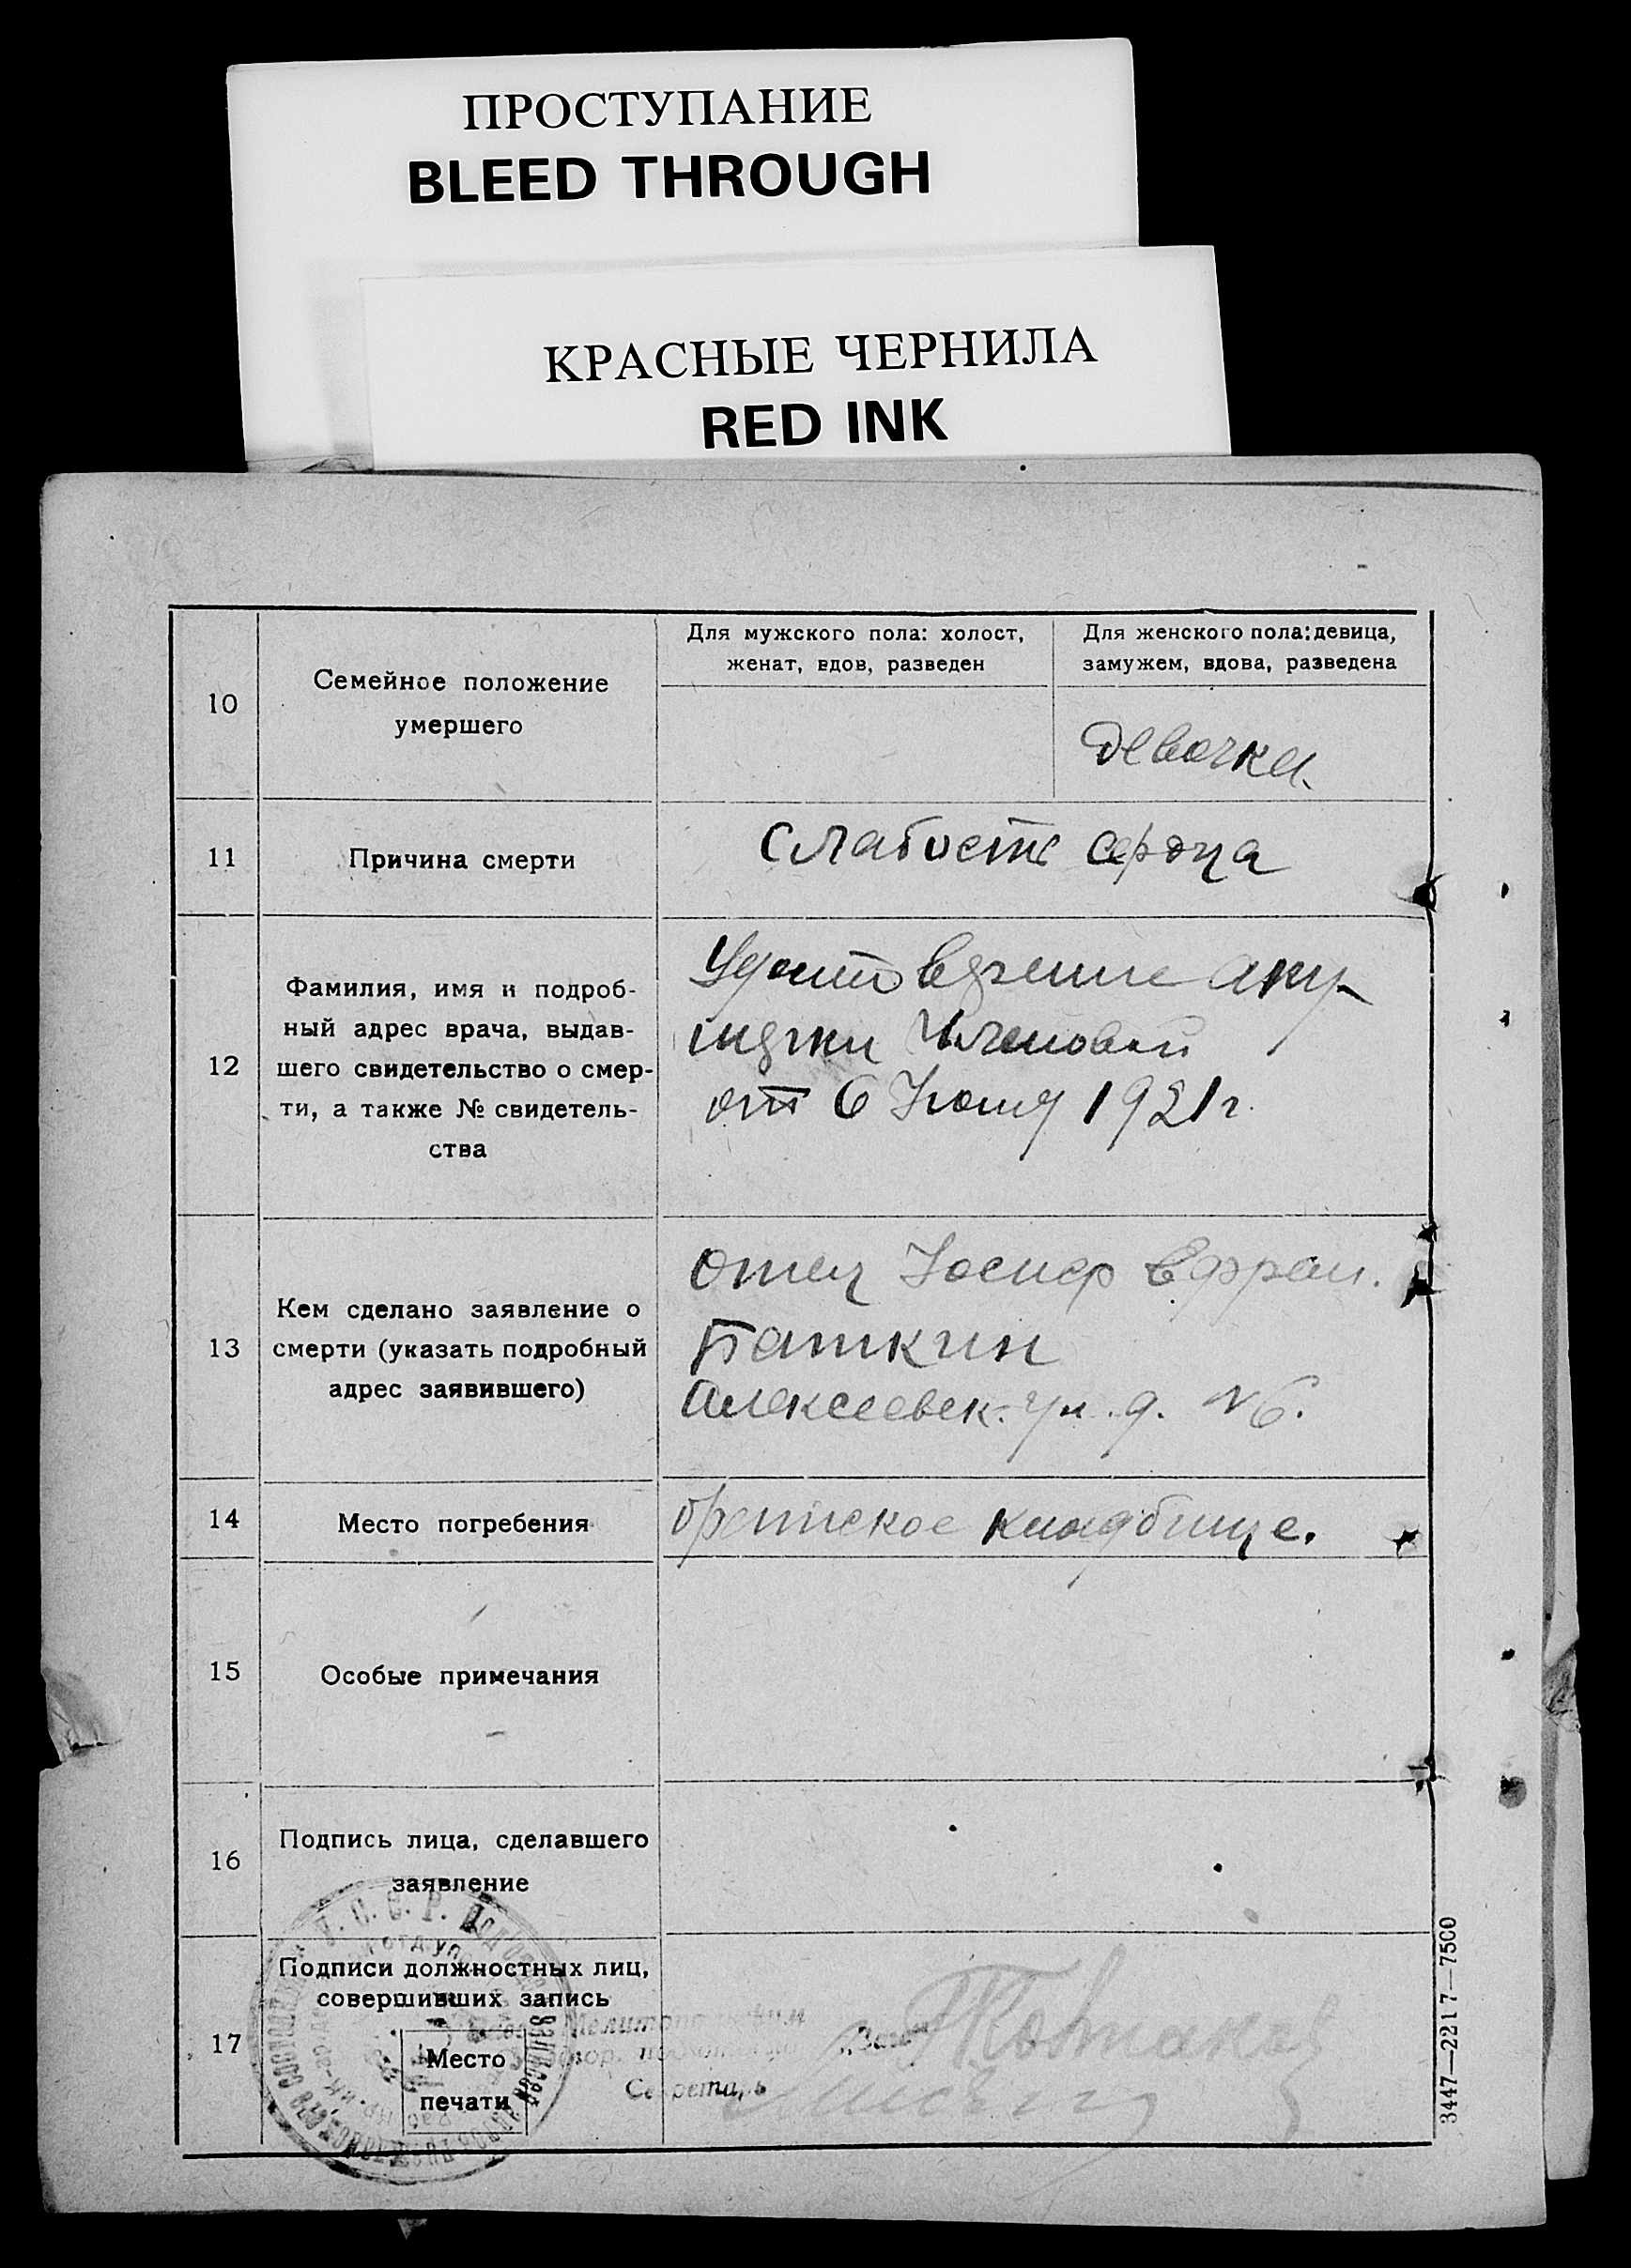 ПРОСТУПАНИЕ
BLEED THROUGH
КРАСНЫЕ ЧЕРНИЛА
RED INK
10
Семейное положение
умершего
Для мужского пола: холост,
женат, вдов, разведен
Для женского пола: девица,
замужем, вдова, разведена
девочка.
11
Причина смерти
Слабость сердца
12
Фамилия, имя и подроб-
ный адрес врача, выдав-
шего свидетельство о смер-
ти, а также № свидетель-
ства
аку-
от 6 Июня 1921 г.
13
Кем сделано заявление о
смерти (указать подробный
адрес заявившего)
Отец Иосиф Ефраи.
Баткин
Алексеевск. ул. д. №6.
14
Место погребения
кладбище.
15
Особые примечания
16
Подпись лица, сделавшего
заявление
17
Подписи должностных лиц,
совершивших запись
Место
печати
Секретарь
3447—2217—7500